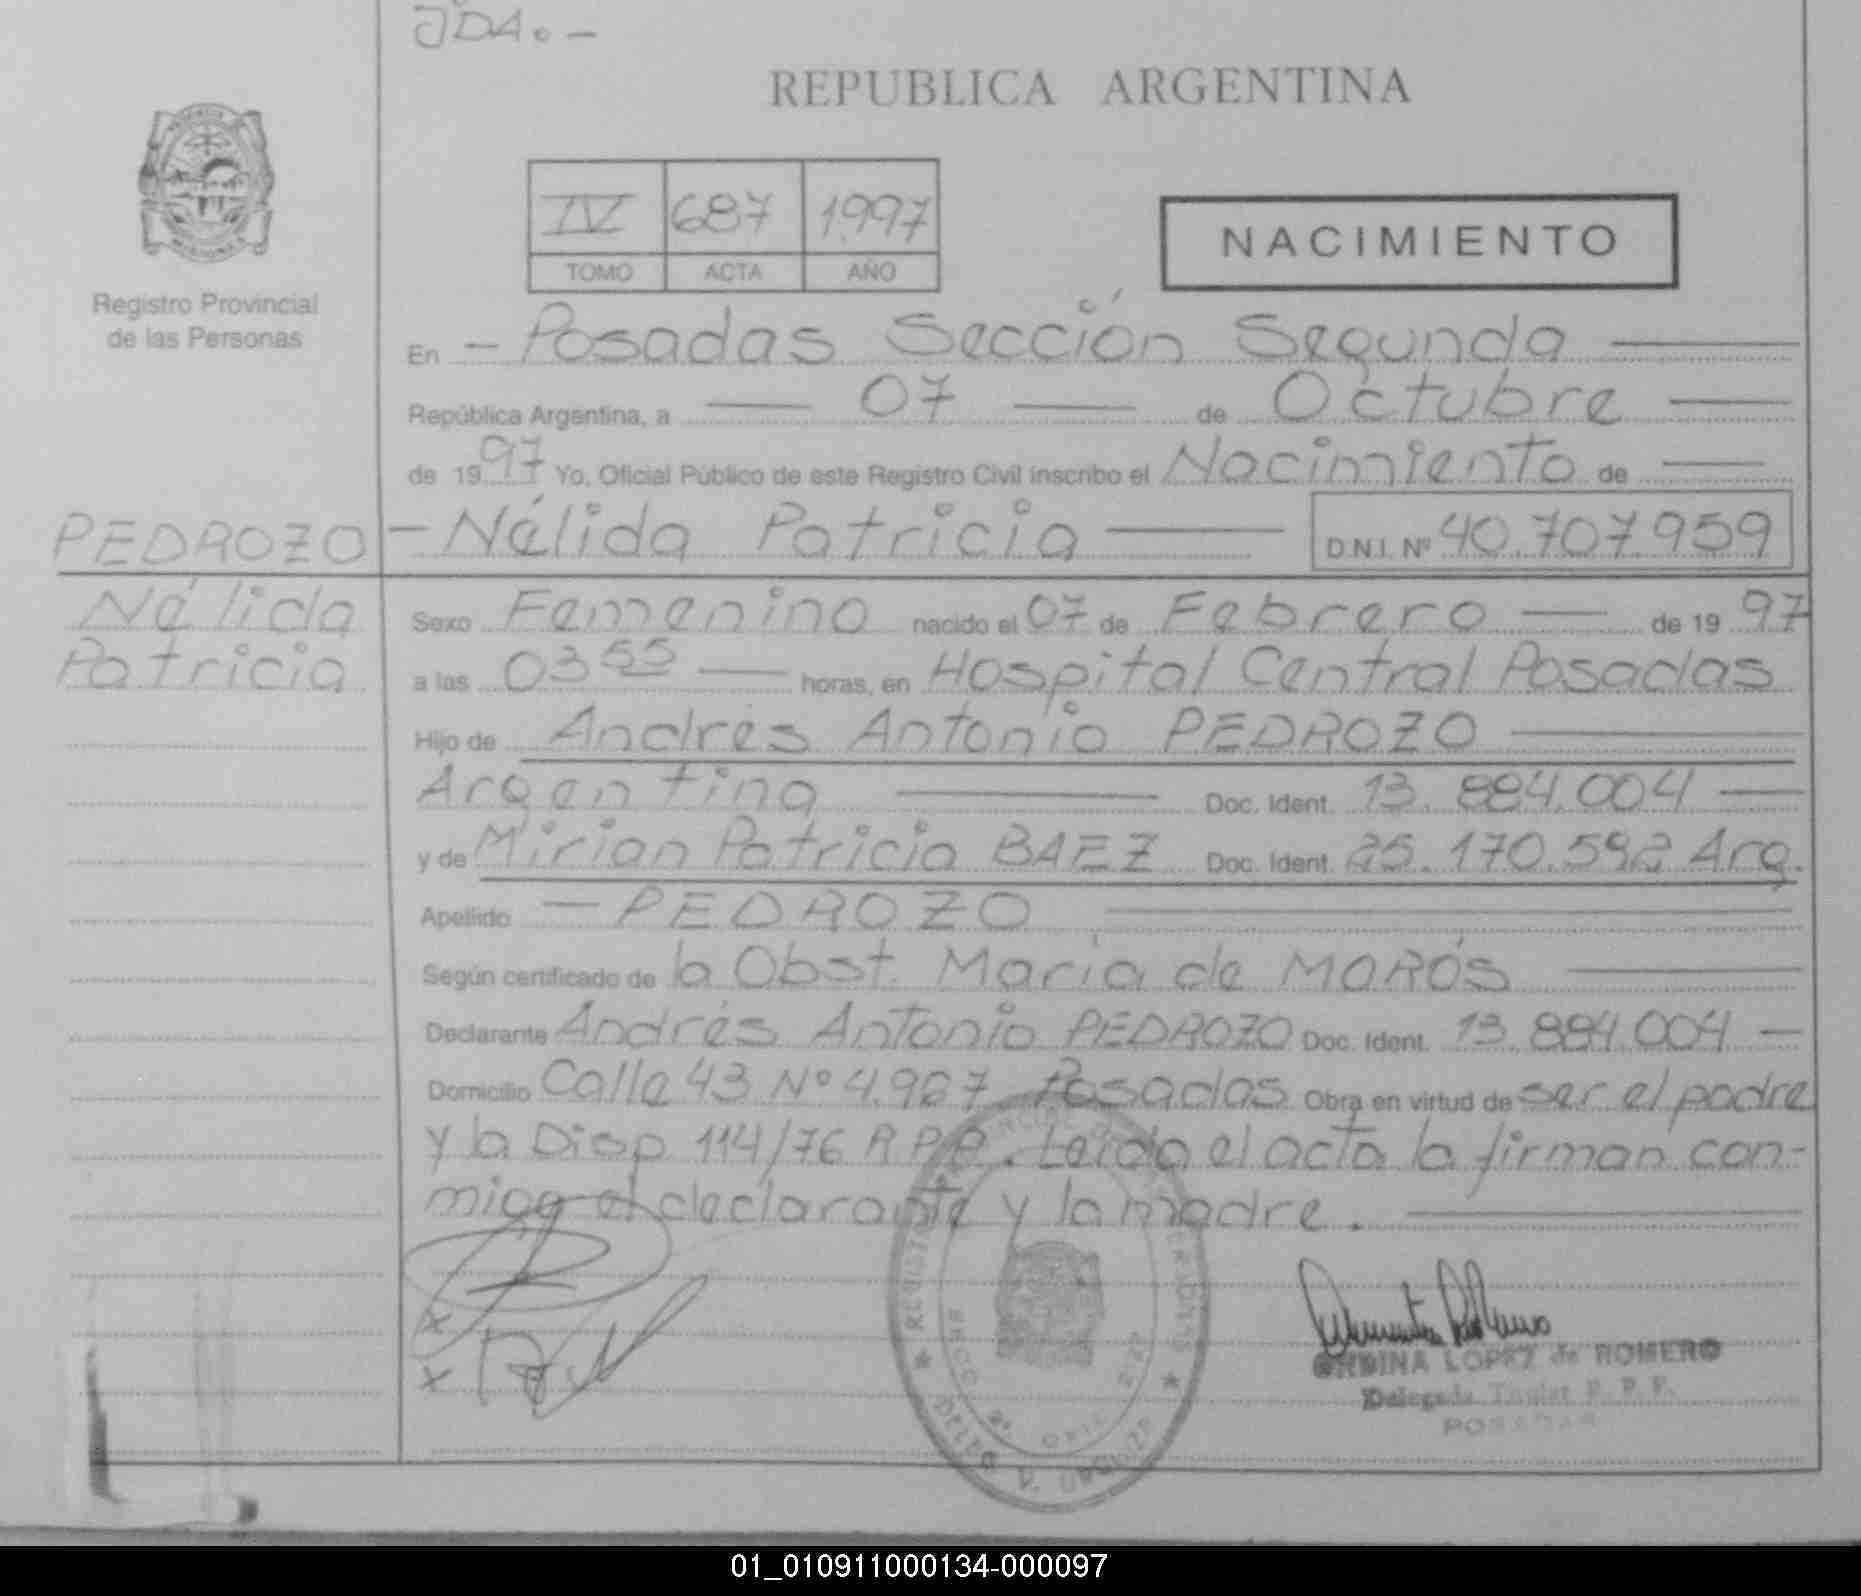 JDA. -
REPUBLICA ARGENTINA
IV 687 1997
TOMO ACTA AÑO
NACIMIENTO
Registro Provincial
de las Personas
En - Posadas Sección Segunda
República Argentina, a 07 de Octubre
de 1997 Yo, Oficial Público de este Registro Civil inscribo el Nacimiento de
PEDROZO - Nélida Patricia D.N.I. Nº 40.707.959
Nélida
Patricia
Sexo Femenino nacido el 07 de Febrero de 1997
a las 03 55 horas, en Hospital Central Posadas
Hijo de Andrés Antonio PEDROZO
Argentina Doc. Ident. 13.884.004
y de Mirian Patricia BAEZ Doc. Ident. 25.170.592 Arg.
Apellido - PEDROZO
Según certificado de la Obst. María de MORÓS
Declarante Andrés Antonio PEDROZO Doc. Ident. 13.884.004 -
Domicilio Calle 43 Nº 4.967 Posadas Obra en virtud de ser el padre
y la Disp 114/76 R.P.P. Leída el acta la firman con-
migo el declarante y la madre.
x
x
LOPEZ de ROMERO
Delegada Titular R. P. P.
POSADAS
01_010911000134-000097